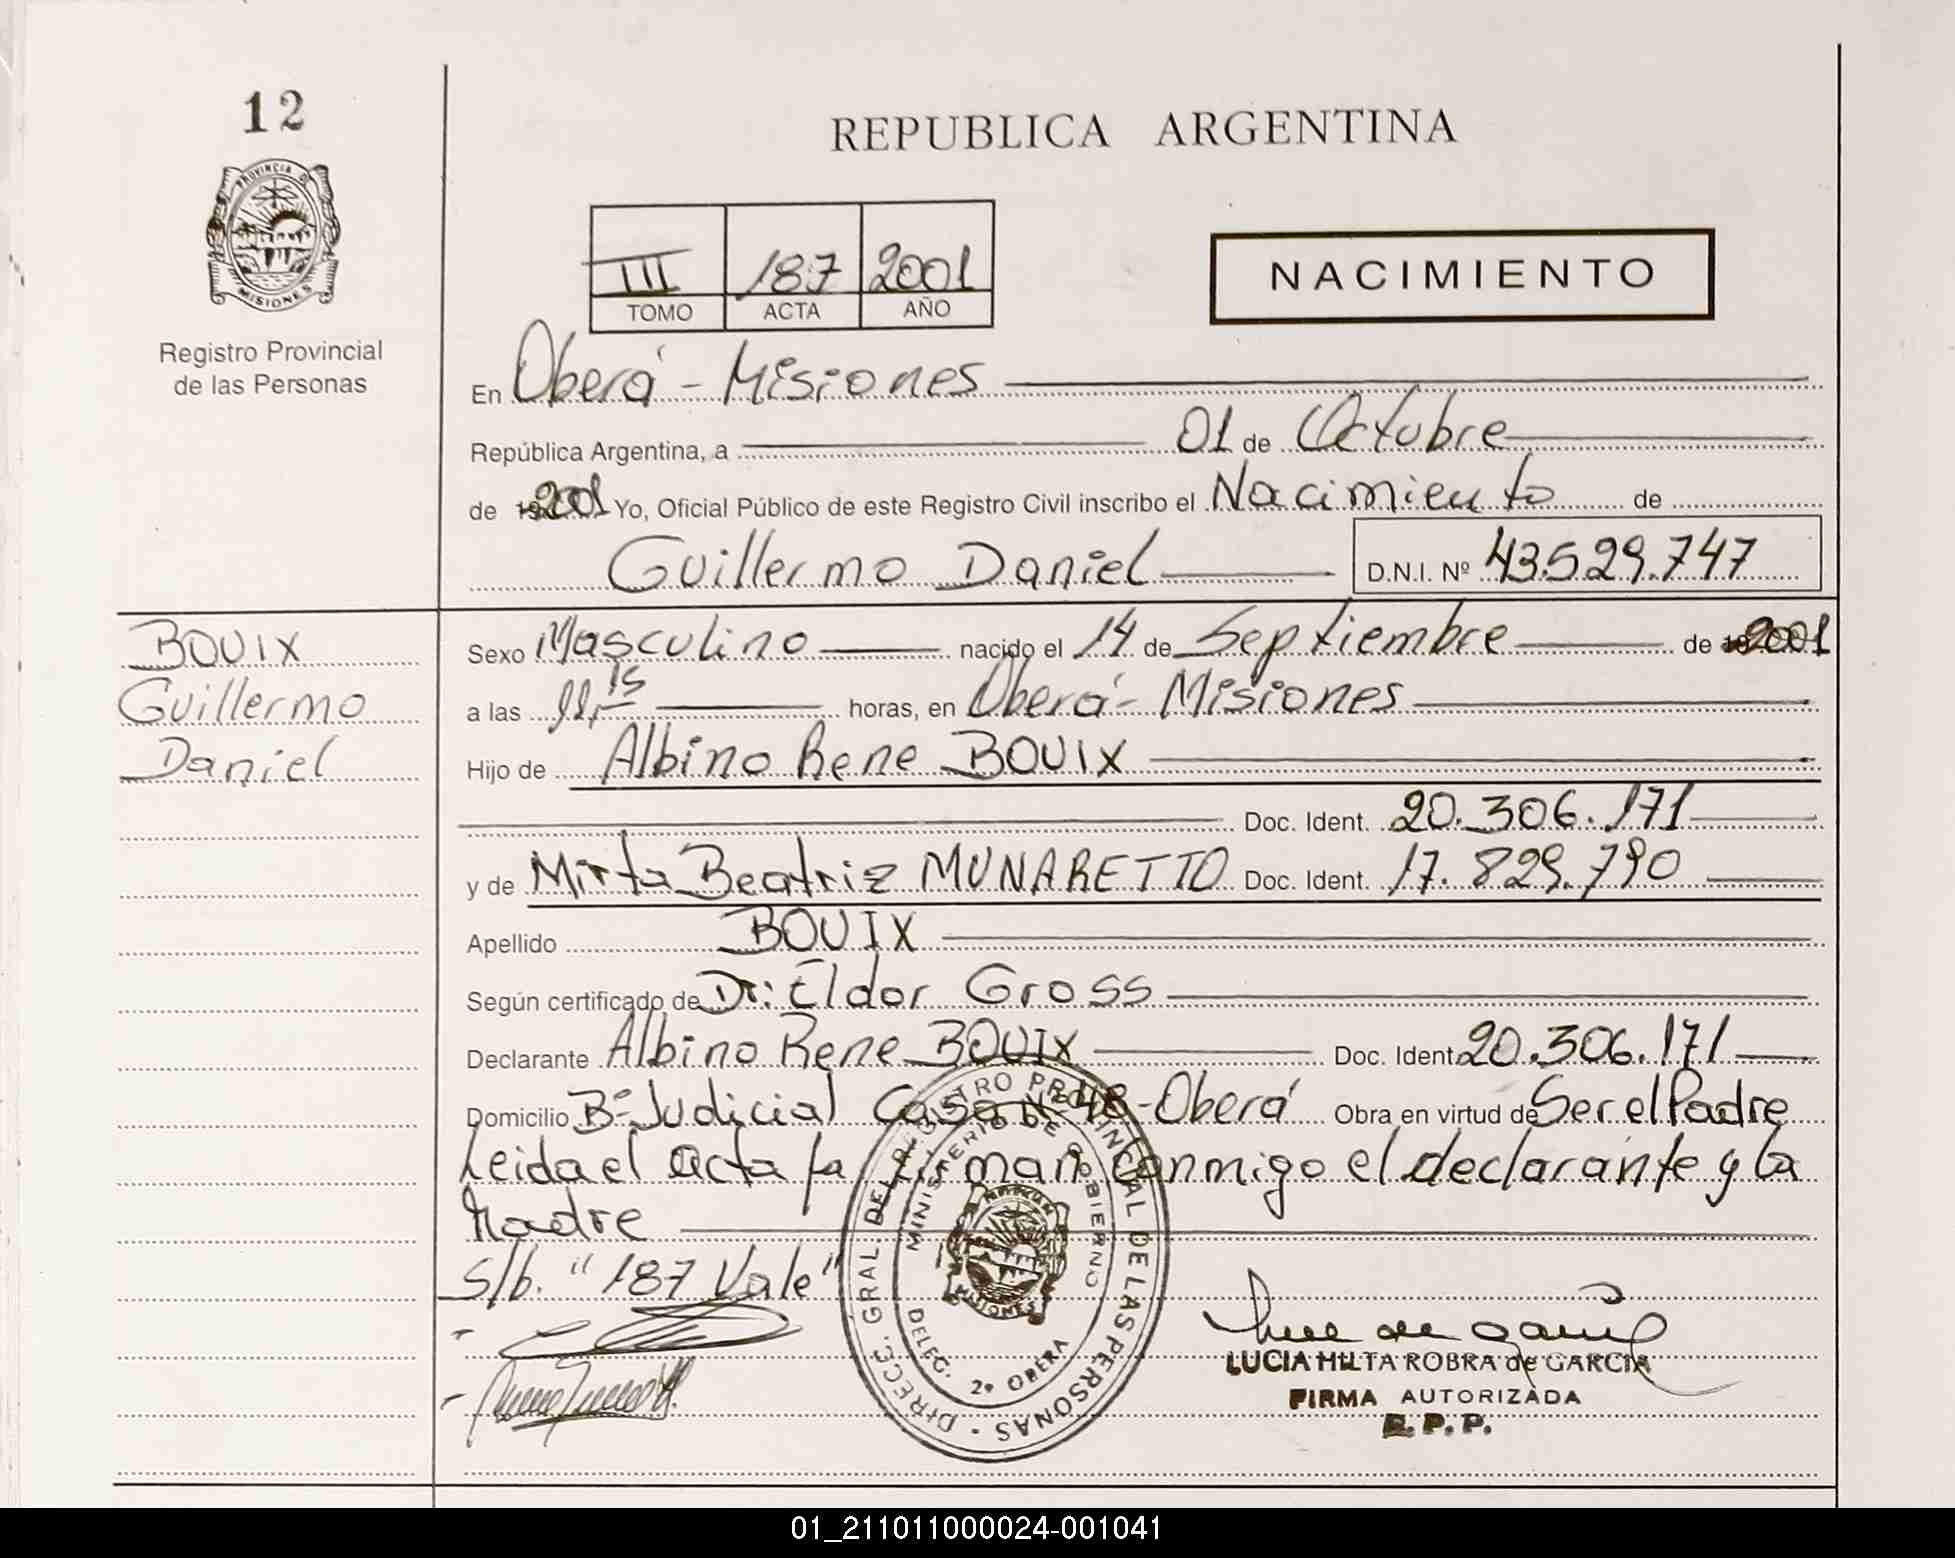 12
PROVINCIA D
MISIONES
Registro Provincial
de las Personas
REPUBLICA ARGENTINA
III 187 2001
TOMO ACTA AÑO
NACIMIENTO
En Oberá - Misiones
República Argentina, a 01 de Octubre
de 2001 Yo, Oficial Público de este Registro Civil inscribo el Nacimiento de
Guillermo Daniel D.N.I. Nº 43.529.747
BOUIX
Guillermo
Daniel
Sexo Masculino nacido el 14 de Septiembre de 2001
a las 11,15 horas, en Oberá - Misiones
Hijo de Albino Rene BOUIX
Doc. Ident. 20.306.171
y de Mirta Beatriz MUNARETTO Doc. Ident. 17.829.790
Apellido BOUIX
Según certificado de Dr: Eldor Gross
Declarante Albino Rene BOUIX Doc. Ident. 20.306.171
Domicilio Bº Judicial Casa Nº 48 - Oberá Obra en virtud de Ser el Padre
Leida el acta la firman conmigo el declarante y la
Madre
S/b. "187 Vale"
DIRECC. GRAL. DEL REGISTRO PROVINCIAL DE LAS PERSONAS
MINISTERIO DE GOBIERNO
MISIONES
DELEG. 2º OBERA
LUCIA HILTA ROBRA de GARCIA
FIRMA AUTORIZADA
R.P.P.
01_211011000024-001041